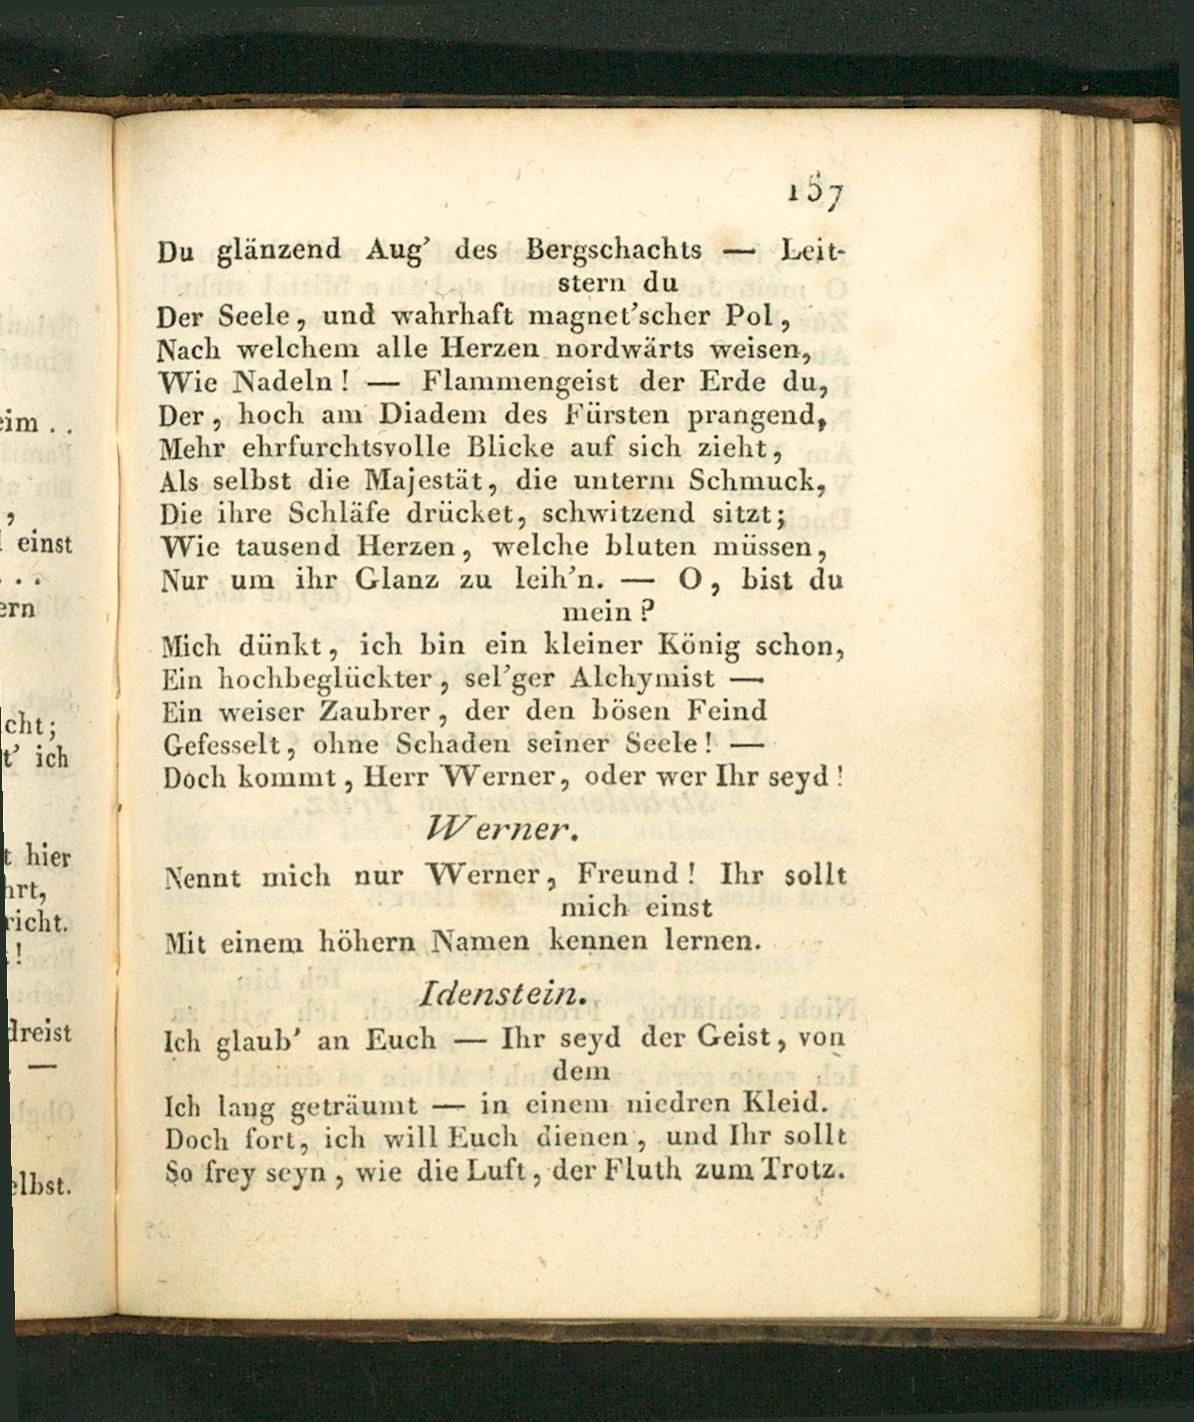 157
Du glänzend Aug' des Bergschachts — Leit-
stern du
Der Seele, und wahrhaft magnet'scher Pol,
Nach welchem alle Herzen nordwärts weisen,
Wie Nadeln! — Flammengeist der Erde du,
Der, hoch am Diadem des Fürsten prangend,
Mehr ehrfurchtsvolle Blicke auf sich zieht,
Als selbst die Majestät, die unterm Schmuck,
Die ihre Schläfe drücket, schwitzend sitzt;
Wie tausend Herzen, welche bluten müssen,
Nur um ihr Glanz zu leih'n. — O, bist du
mein?
Mich dünkt, ich bin ein kleiner König schon,
Ein hochbeglückter, sel'ger Alchymist —
Ein weiser Zaubrer, der den bösen Feind
Gefesselt, ohne Schaden seiner Seele! —
Doch kommt, Herr Werner, oder wer Ihr seyd!
Werner.
Nennt mich nur Werner, Freund! Ihr sollt
mich einst
Mit einem höhern Namen kennen lernen.
Idenstein.
Ich glaub' an Euch — Ihr seyd der Geist, von
dem
Ich lang geträumt — in einem niedren Kleid.
Doch fort, ich will Euch dienen, und Ihr sollt
So frey seyn, wie die Luft, der Fluth zum Trotz.
eim . .
,
einst
. . .
ern
cht;
t' ich
t hier
hrt,
richt.
!
dreist
—
elbst.